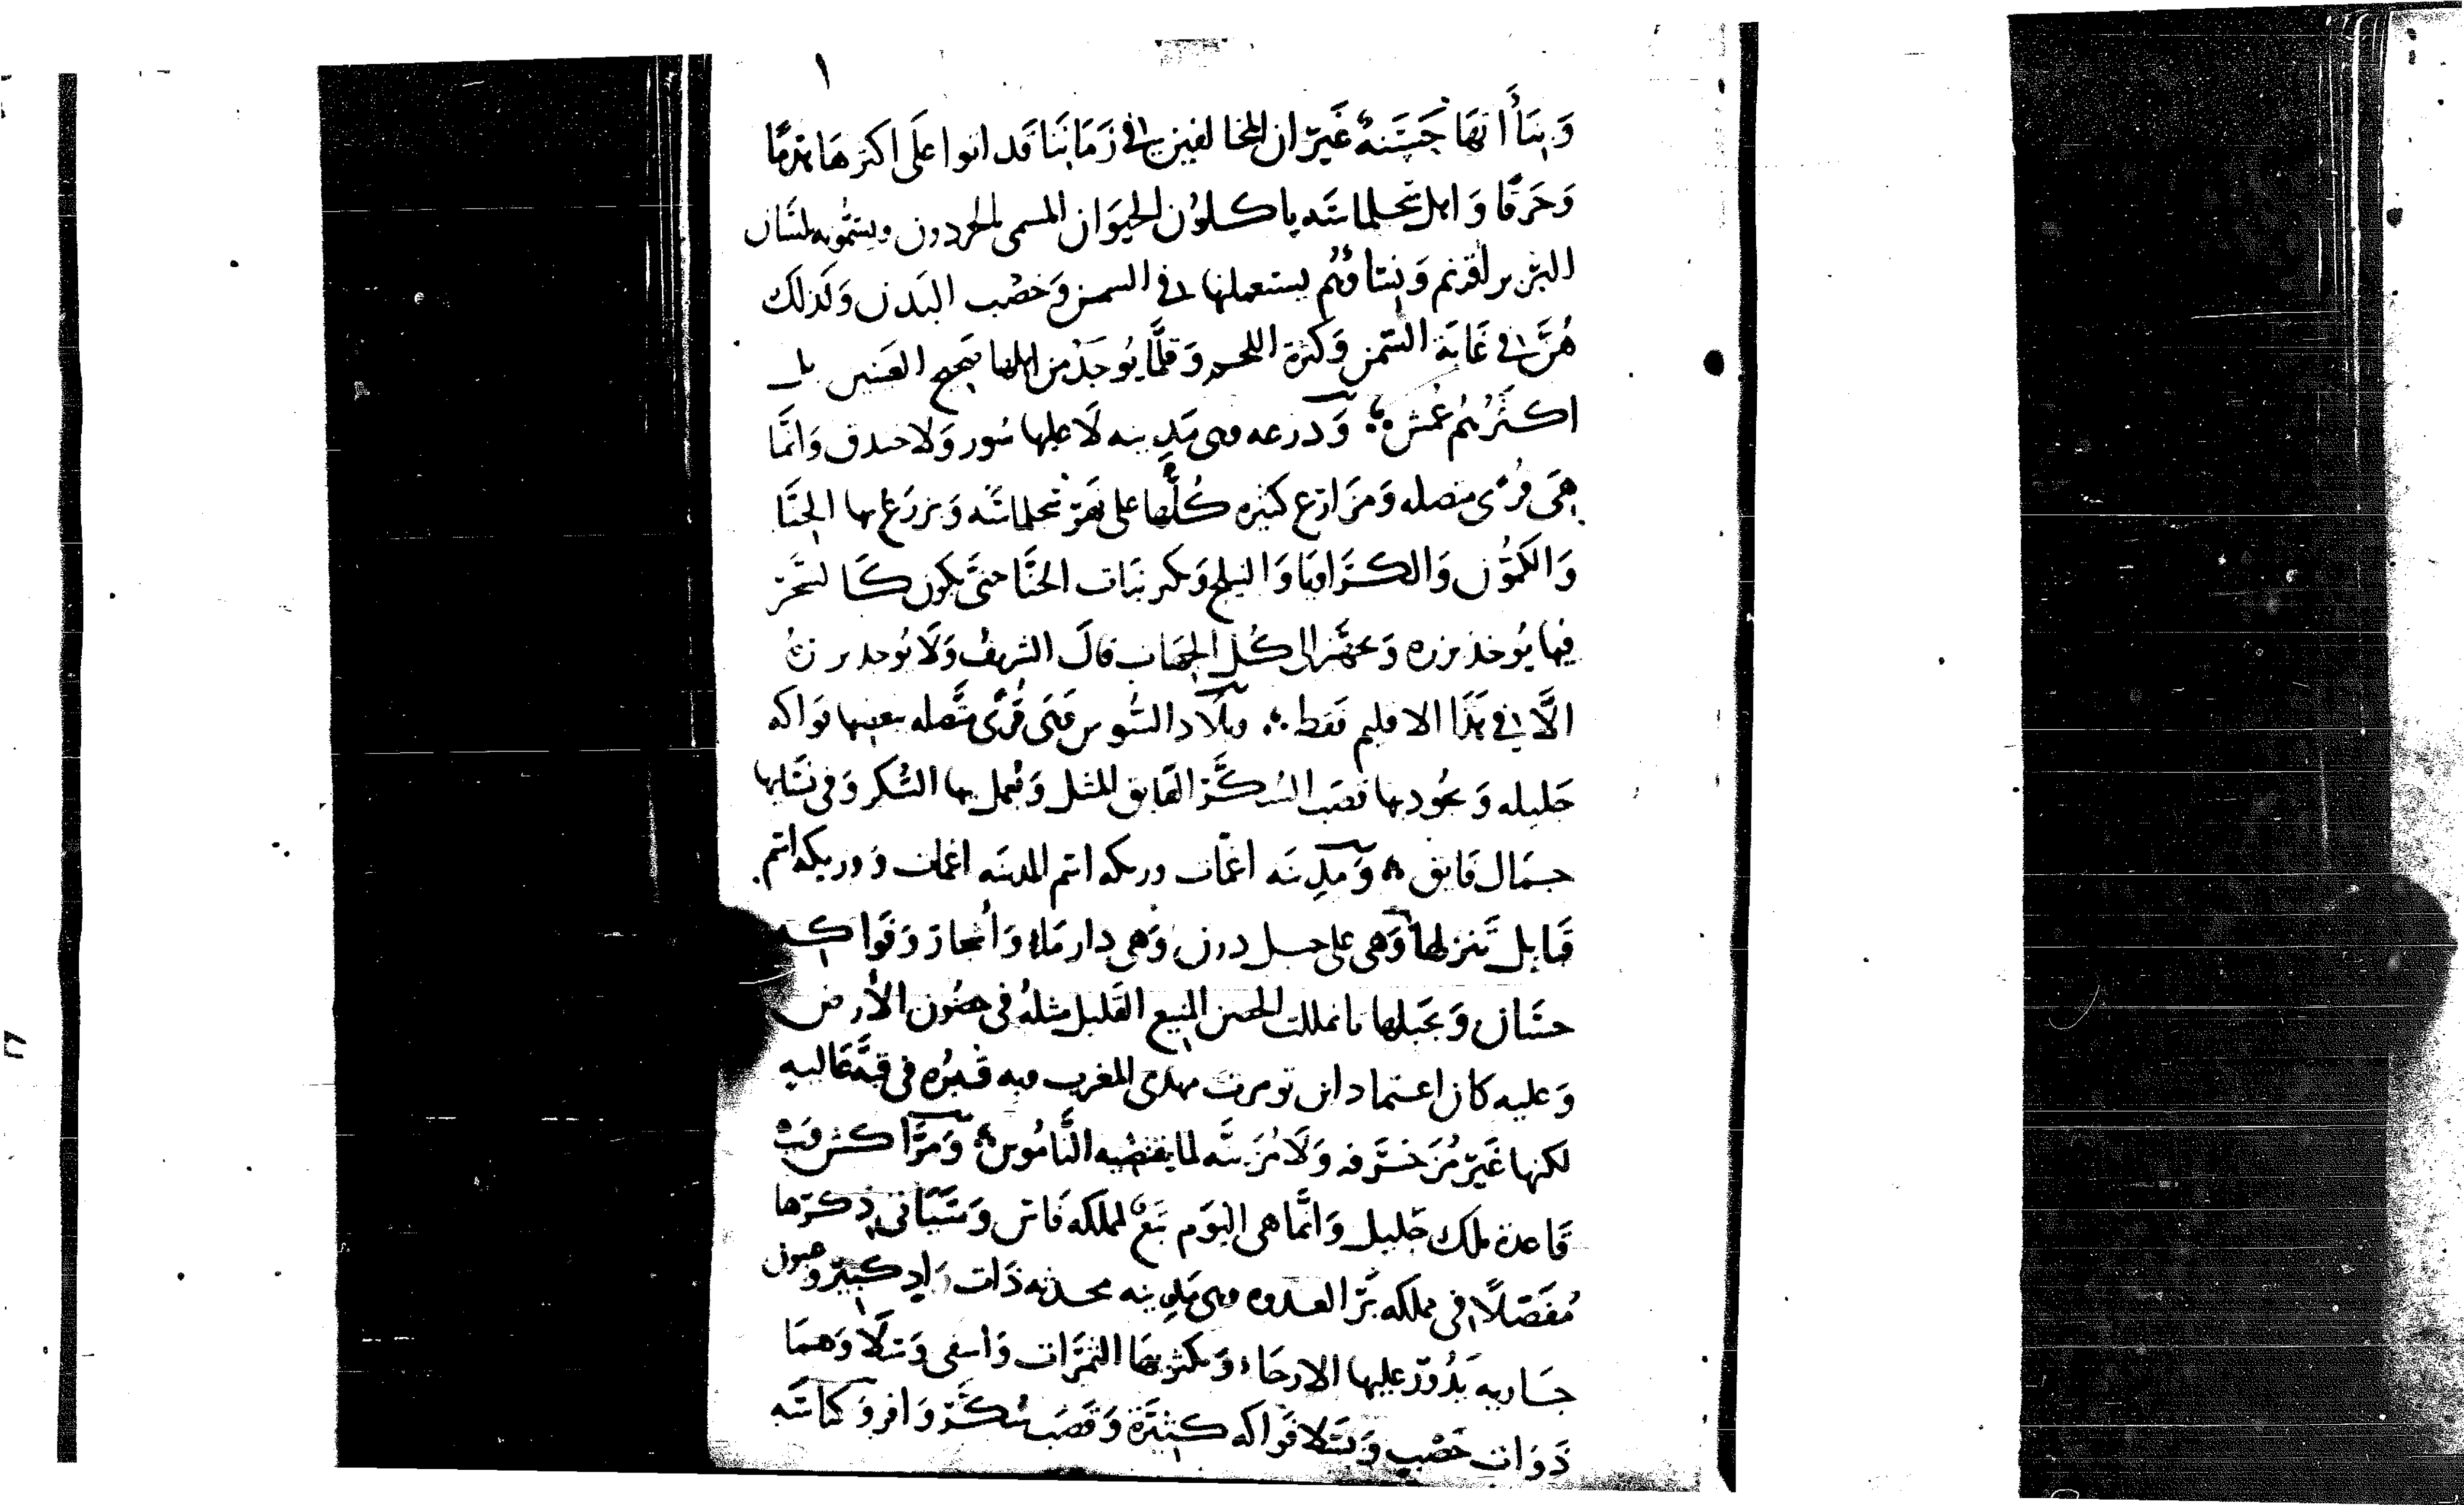 ١
وبناأنها حسنة غير ان المخالفين في زماننا قد اتوا على اكثرها هدمًا
وحرقًا واهل سجلماسه ياكلون الحيوان المسمى بالحردون ويسمونه بلسان
البربر اقزيم ونساؤهم يستعملنها في السمن وخصب البدن ولذلك
هُنَّ في غاية السمن وكثرة اللحم وقلَّما يوجد من اهلها صحيح العينين بل
اكثرهم عمش ودرعه وهي مدينه لا عليها سور ولا خندق وانما
هي قرى متصله ومزارع كثيره كلها على نهر سجلماسه ويزرع بها الحنا
والكمون والكراويا والنيلج ويكبر نبات الحنا حتى يكون كالشجر
فيها يوخذ بزره ويجهز الى كل الجهات قال الشريف ولا يوخذ بزره
الا في هذا الاقليم فقط وبلاد السوس فهي قرى متصله بعضها فواكه
جليله ويجود بها قصب السكر الفايق المثل ويعمل بها السكر وفي نسايها
جمال فايق ومدينه اغمات وريكه اسم المدينه اغمات ووريكه اسم
قبايل تنزلها وهي على جبل درن وهي دار ماء واشجار وفواكه
حسان وبجبلها تانمللت الحصن المنيع القليل مثله في حصون الأرض
وعليه كان اعتماد ابن تومرت مهدي المغرب وبه قبره في قبة عاليه
لكنها غير مزخرفه ولا مزينه لما يقتضيه الناموس ومراكش وهي
قاعدة ملك جليل وانما هي اليوم تبع لمملكه فاس وسياتي ذكرها
مفصلًا في مملكه بر العدوه وهي مدينه محدثه ذات واد كبير وعيون
جاريه يدور عليها الارحاء ويكثر بها الثمرات واسفي وتلا وهما
ذوات خصب وبتلا فواكه كثيرة وقصب سكر وافر وكماسه